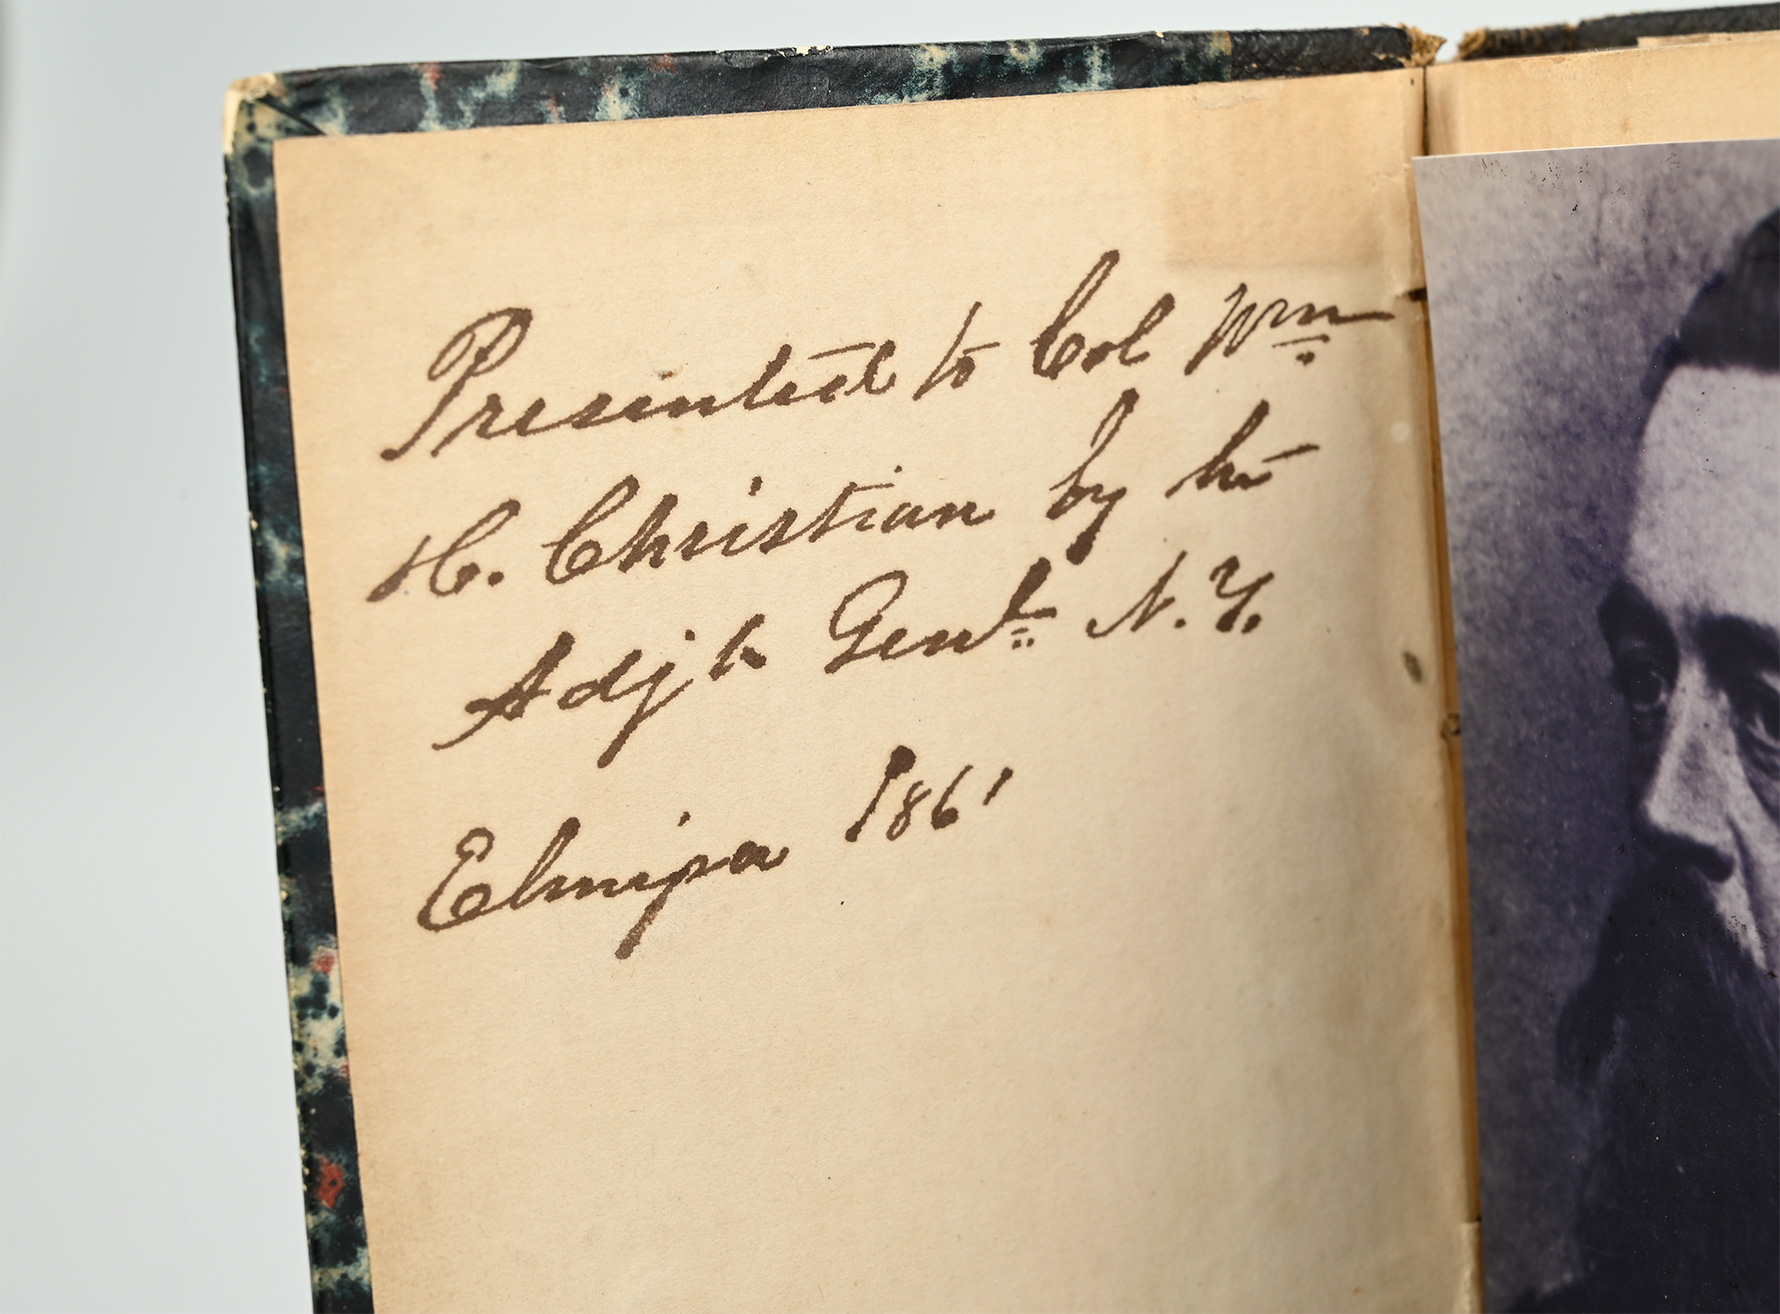 Presented to Col Wm
H. Christian by the
Adjt Genl N.Y.
Elmira 1861